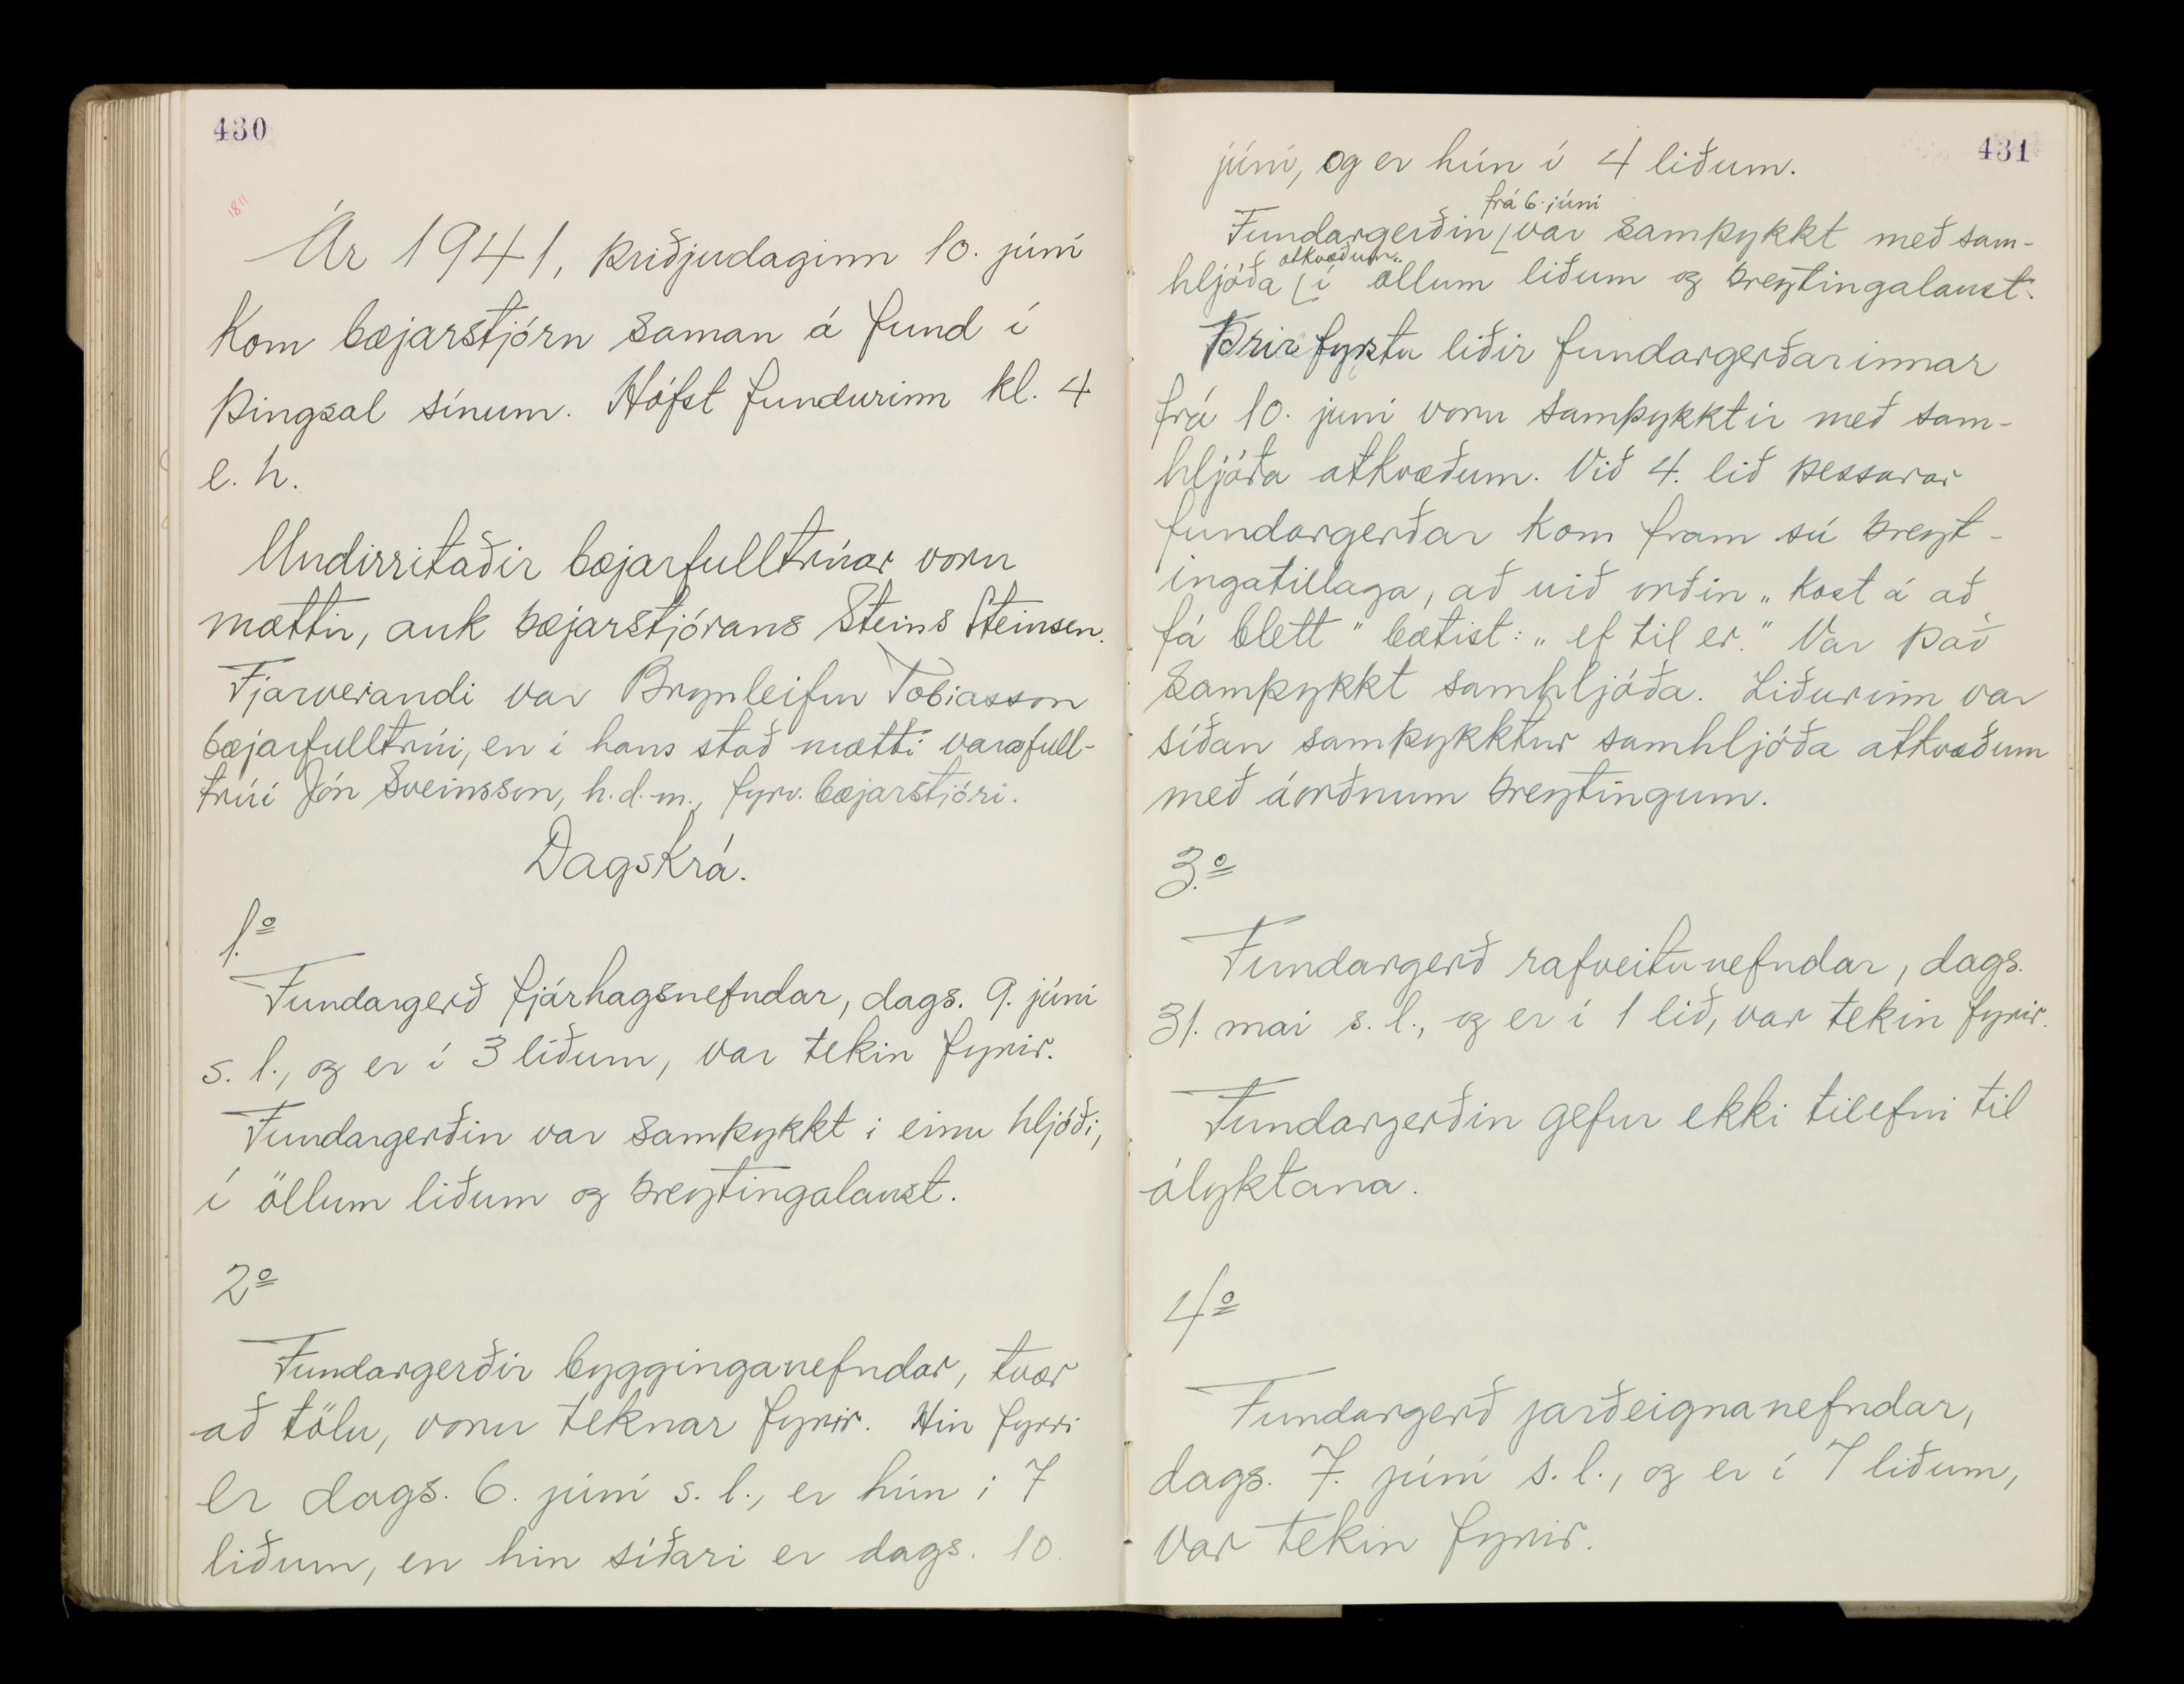 430
1811
Ár 1941, þriðjudaginn 10. júní
kom bæjarstjórn saman á fund í
þingsal sínum. Hófst fundurinn kl. 4
e. h.
Undirritaðir bæjarfulltrúar voru
mættir, auk bæjarstjórans Steins Steinsen.
Fjarverandi var Brynleifur Tobiasson
bæjarfulltrúi, en í hans stað mætti varafull-
trúi Jón Sveinsson, h.d.m., fyrv. bæjarstjóri.
Dagskrá.
1.º
Fundargerð fjárhagsnefndar, dags. 9. júní
s. l., og er í 3 liðum, var tekin fyrir.
Fundargerðin var samþykkt í einu hljóði,
í öllum liðum og breytingalaust.
2º
Fundargerðir bygginganefndar, tvær
að tölu, voru teknar fyrir. Hin fyrri
er dags. 6. júní s. l., er hún í 7
liðum, en hin síðari er dags. 10.
431
júní, og er hún í 4 liðum.
frá 6. júní
Fundargerðin var samþykkt með sam-
atkvæðum
hljóða í öllum liðum og breytingalaust.
Þrír fyrstu liðir fundargerðarinnar
frá 10. júní voru samþykktir með sam-
hljóða atkvæðum. Við 4. lið þessarar
fundargerðar kom fram sú breyt-
ingatillaga, að við orðin „kost á að
fá blett" bætist: „ef til er." Var það
samþykkt samhljóða. Liðurinn var
síðan samþykktur samhljóða atkvæðum
með áorðnum breytingum.
3.º
Fundargerð rafveitunefndar, dags.
31. mai s. l., og er í 1 lið, var tekin fyrir.
Fundargerðin gefur ekki tilefni til
ályktana.
4º
Fundargerð jarðeignanefndar,
dags. 7. júní s. l., og er í 7 liðum,
var tekin fyrir.